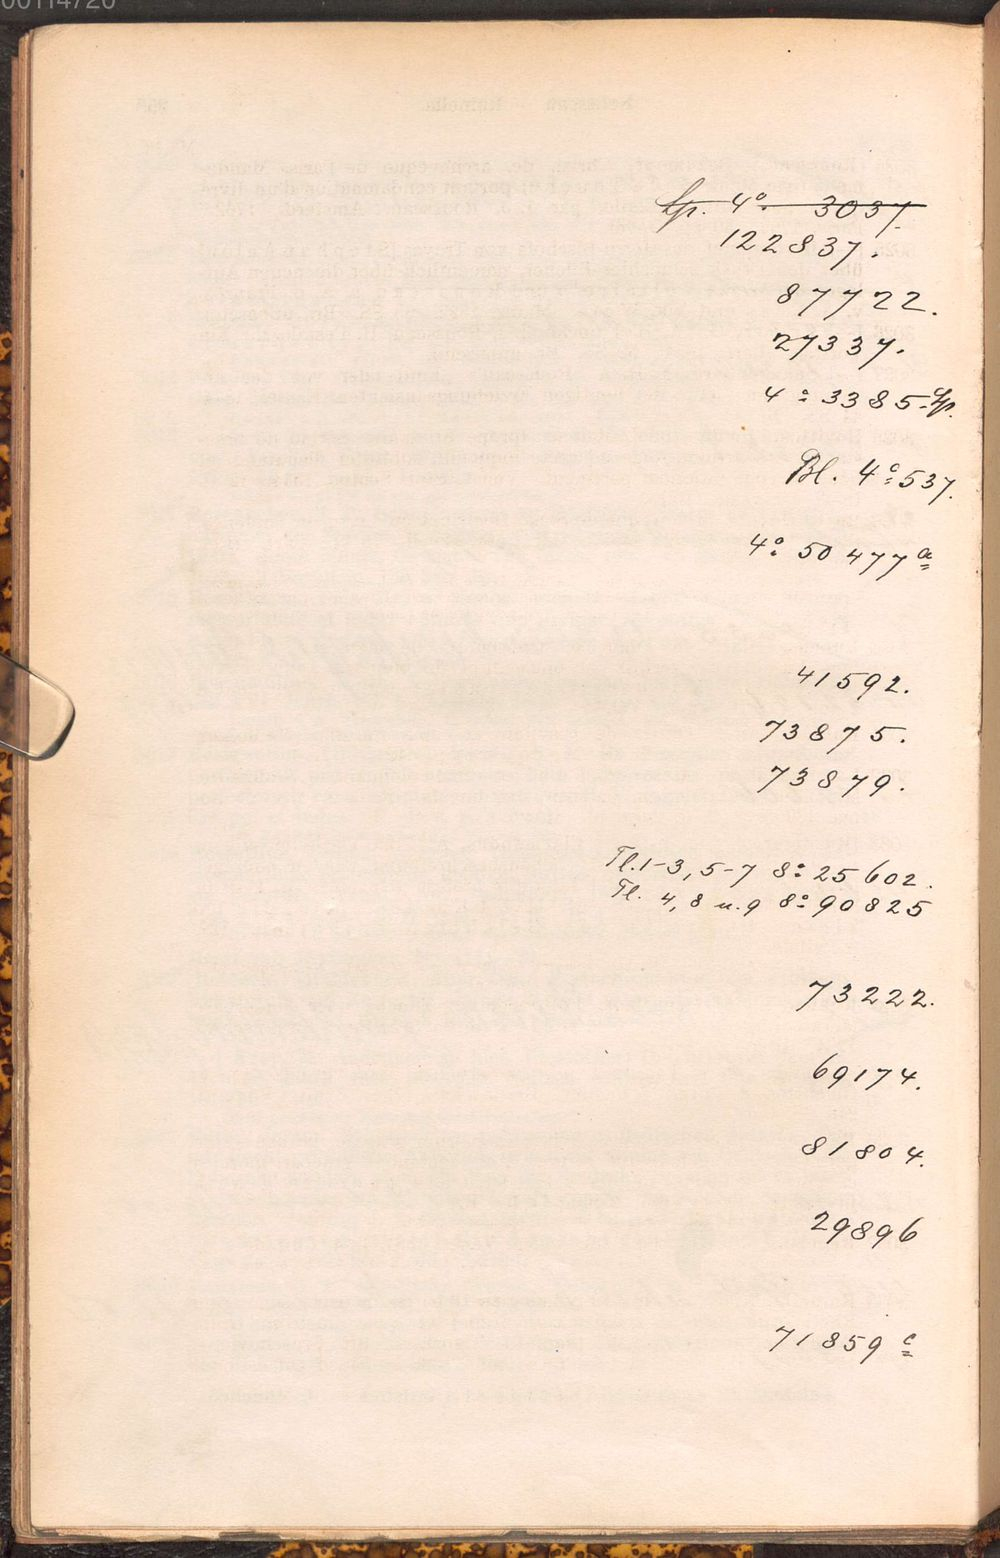 00114720
Sp. 4° 3037.
122837.
87722.
27337.
4° 3385 Sp.
Bl. 4° 537.
4° 50477 a
41592.
73875.
73879.
Tl. 1-3, 5-7 8° 25602.
Tl. 4, 8 u. 9 8° 90825
73222.
69174.
81804.
29896
71859 c